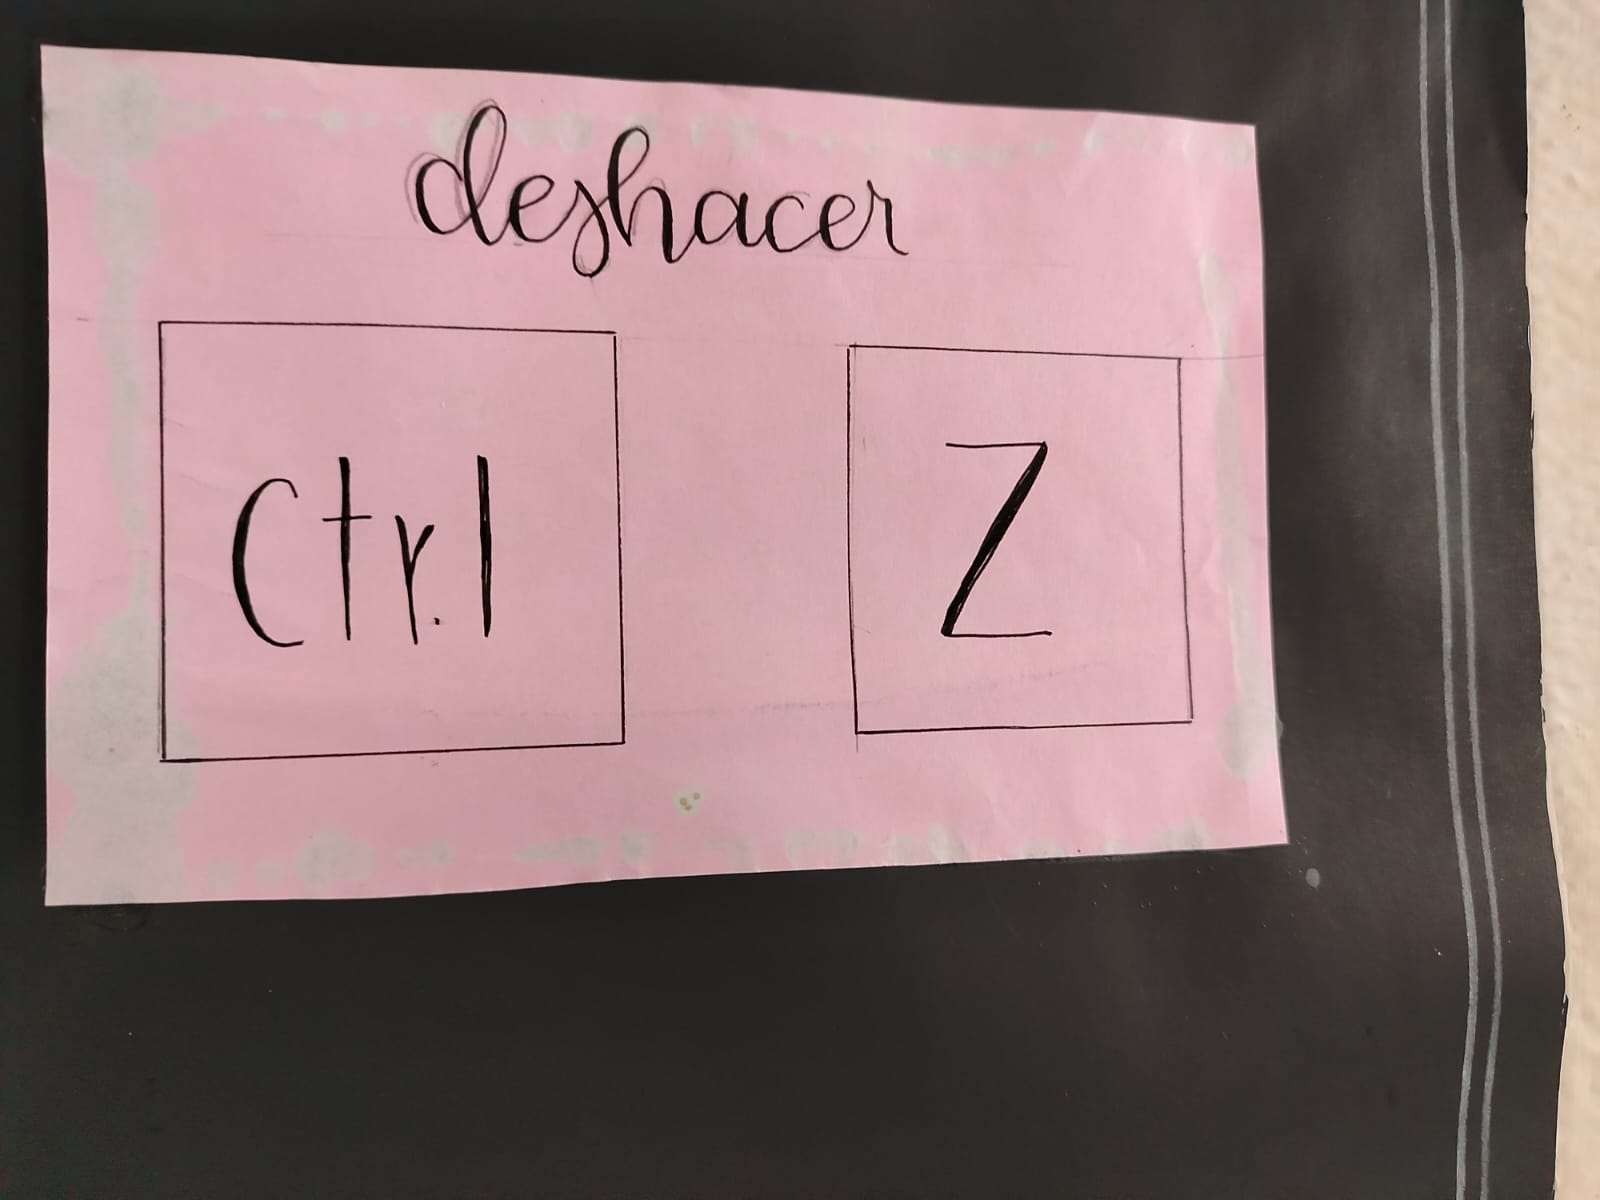 deshacer
Ctr.l Z